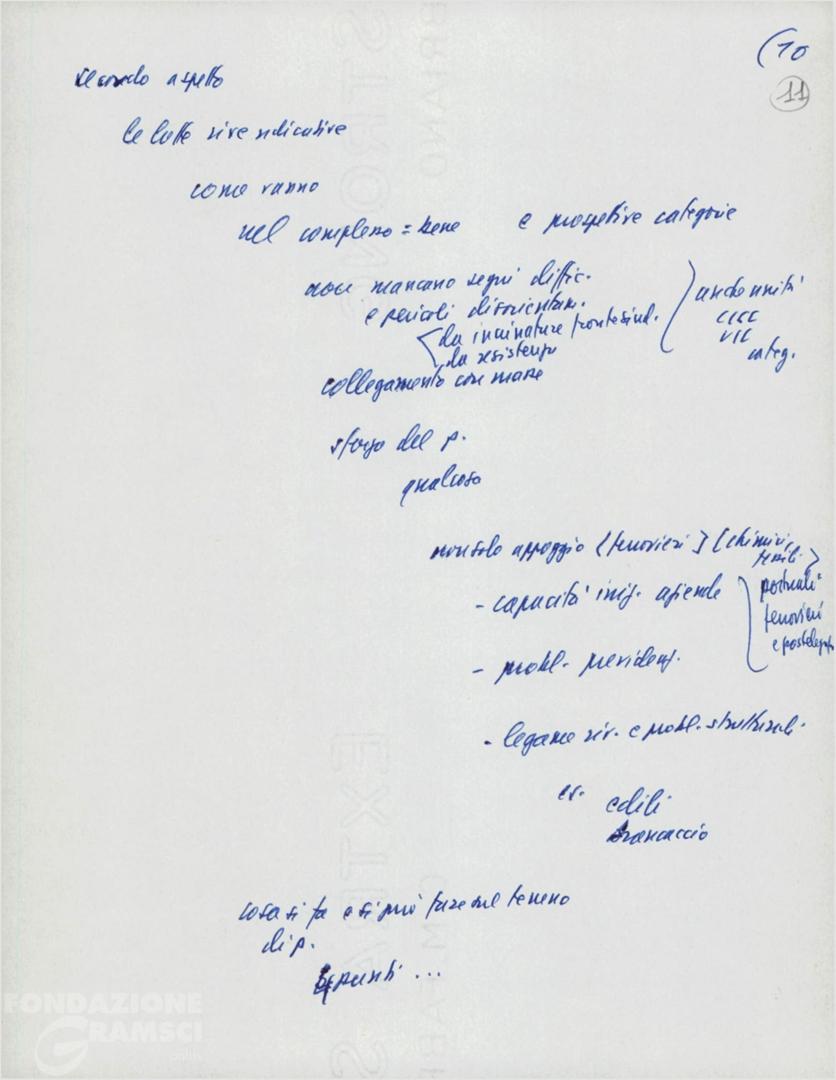 (10
11
secondo aspetto
le lotte rivendicative
come vanno
nel complesso = bene e prospettive categorie
non mancano segni diffic.
e pericoli disorientam.
da incrinature fronte sind.
da resistenza
anche unità
categ.
collegamento con masse
sforzo del p.
qualcosa
non solo appoggio (ferrovieri) (chimici,
tessili)
- capacità iniz. aziende
portuali
ferrovieri
e postelegraf.
- probl. previdenz.
- legame riv. e probl. strutturali.
es. edili
Brancaccio
cosa si fa e si può fare sul terreno
di p.
spunti ...
FONDAZIONE
GRAMSCI